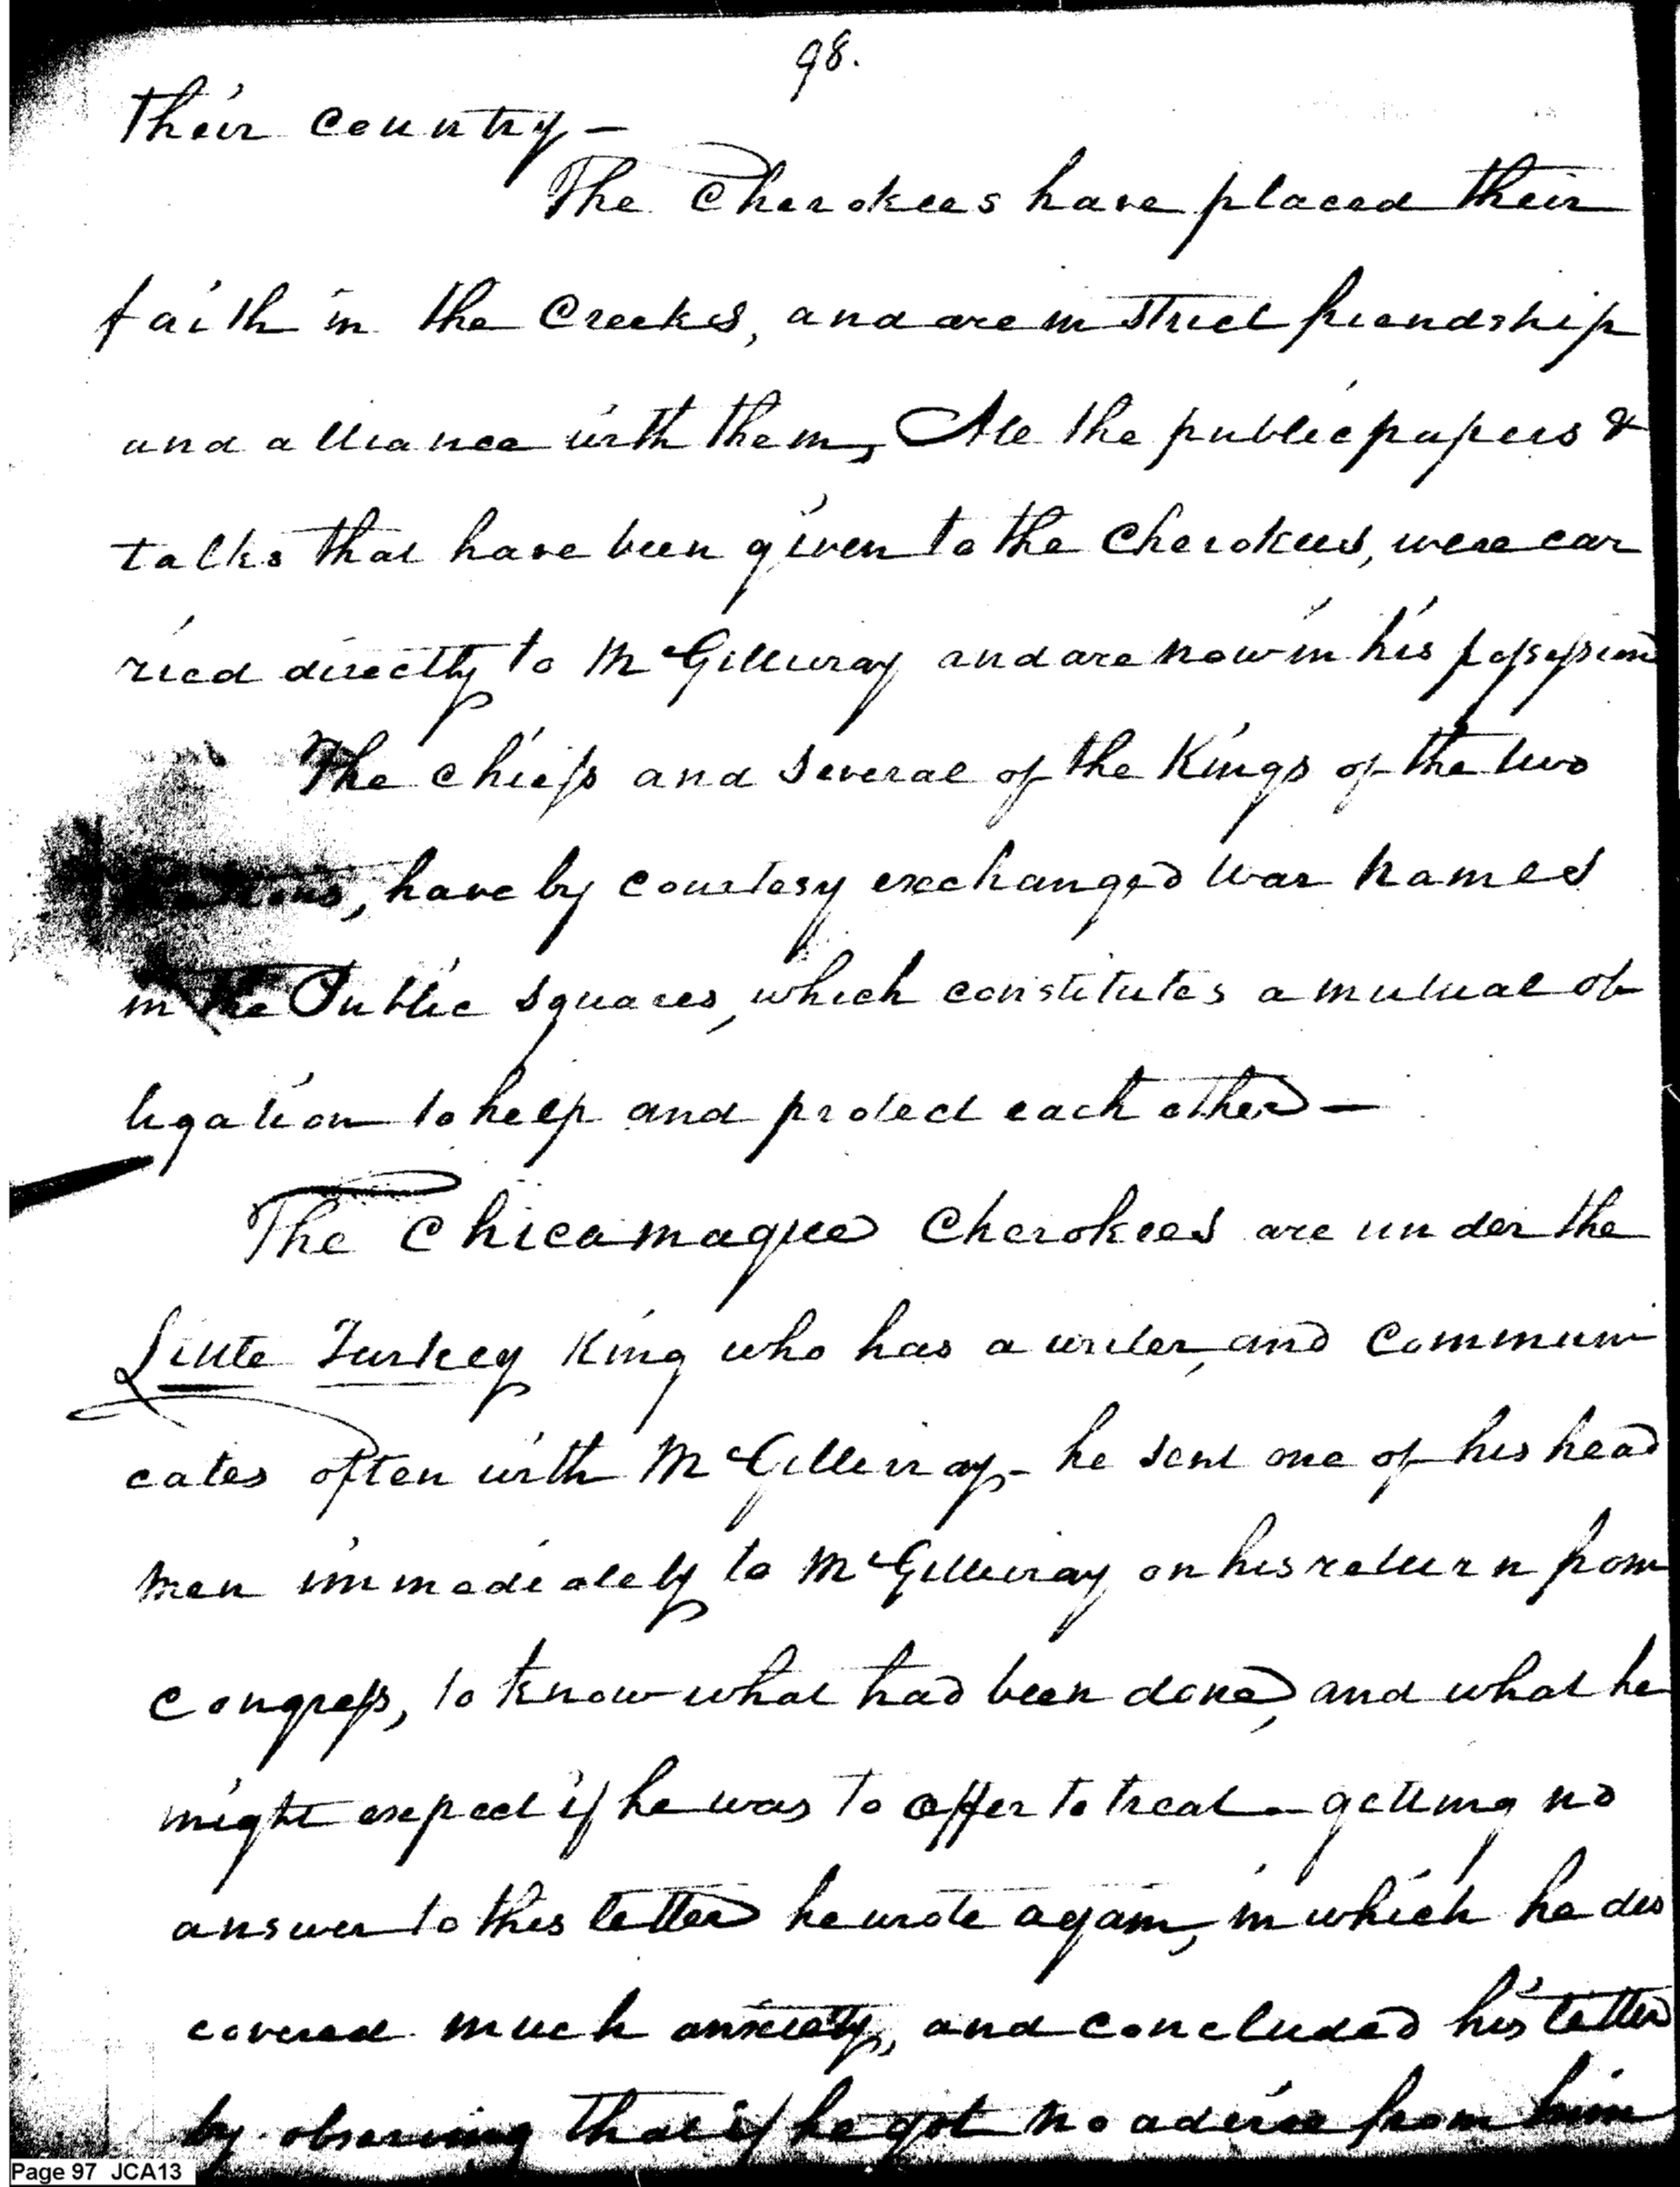 98.
Their country —
The Cherokees have placed their
faith in the Creeks, and are in strict friendship
and alliance with them, All the public papers &
talks that have been given to the Cherokees, were car
ried directly to McGillivray and are now in his possession
The chiefs and several of the Kings of the two
Nations, have by courtesy exchanged War names
in the Public Squares, which constitutes a mutual ob
ligation to help and protect each other —
The Chicamagee Cherokees are under the
Little Turkey King who has a writer, and communi
cates often with McGillivray - he sent one of his head
men immediately to McGillivray on his return from
Congress, to know what had been done, and what he
might expect if he was to offer to treat - getting no
answer to this letter he wrote again, in which he dis
covered much anxiety, and concluded his letter
by observing that if he got no advice from him
Page 97 JCA13